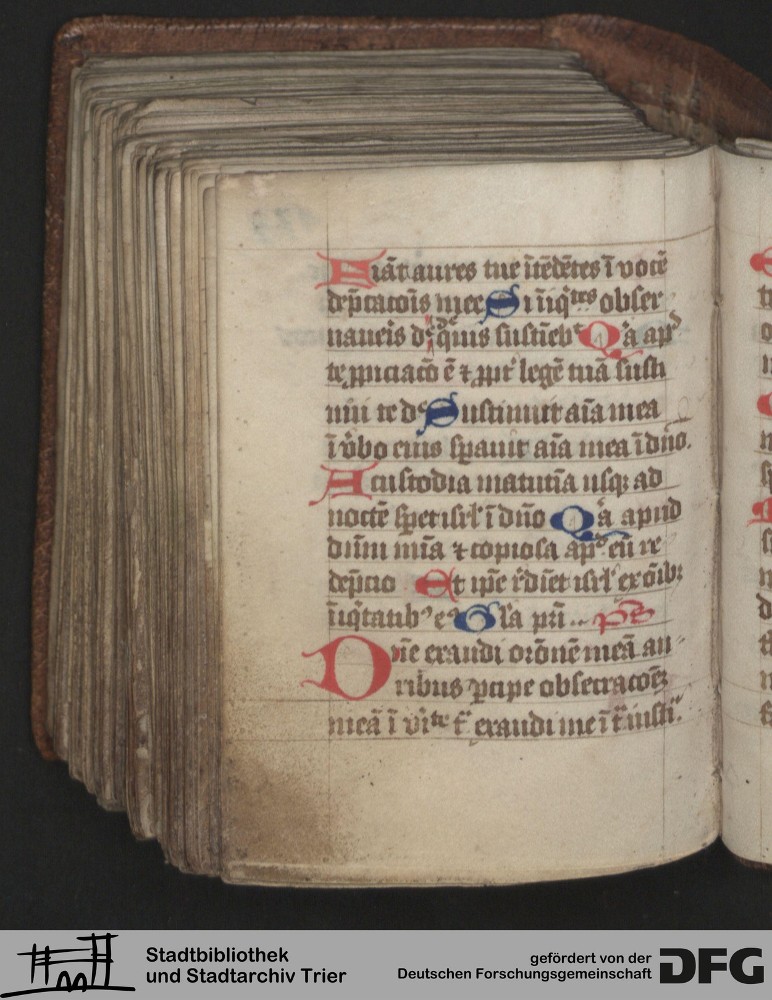 Fiāt aures tue ītēdētes ī vocē
dep̄catōis mee Si īiq̄tes obser
uaueris dn̄e dn̄e q̄uis sustīebᵗ Qꝛa apᵈ
te ꝓpiciacō ē ⁊ ꝓpt̄ legē tuā susti
nui te dn̄e Sustinuit aīa mea
ī v̄bo eius sꝑauit aīa mea ī dn̄o.
A custodia matutīa usqꝫ ad
noctē speret isrl̄ ī dn̄o Qꝛa apud
dn̄m mīa ⁊ copiosa apᵈ eū re
dep̄cio Et ip̄e rēdiet isrl̄ ex oīibꝫ
īiq̄tatibꝰ eꝰ Gl̄a pr̄i .. p̄s
Dn̄e exaudi orōnē meā au
ribus ꝑcipe obsecracōeꝫ
meā ī v̄itᵗᵉ t̄ exaudi me ī t̄ iusti.
Stadtbibliothek
und Stadtarchiv Trier
gefördert von der
Deutschen Forschungsgemeinschaft
DFG